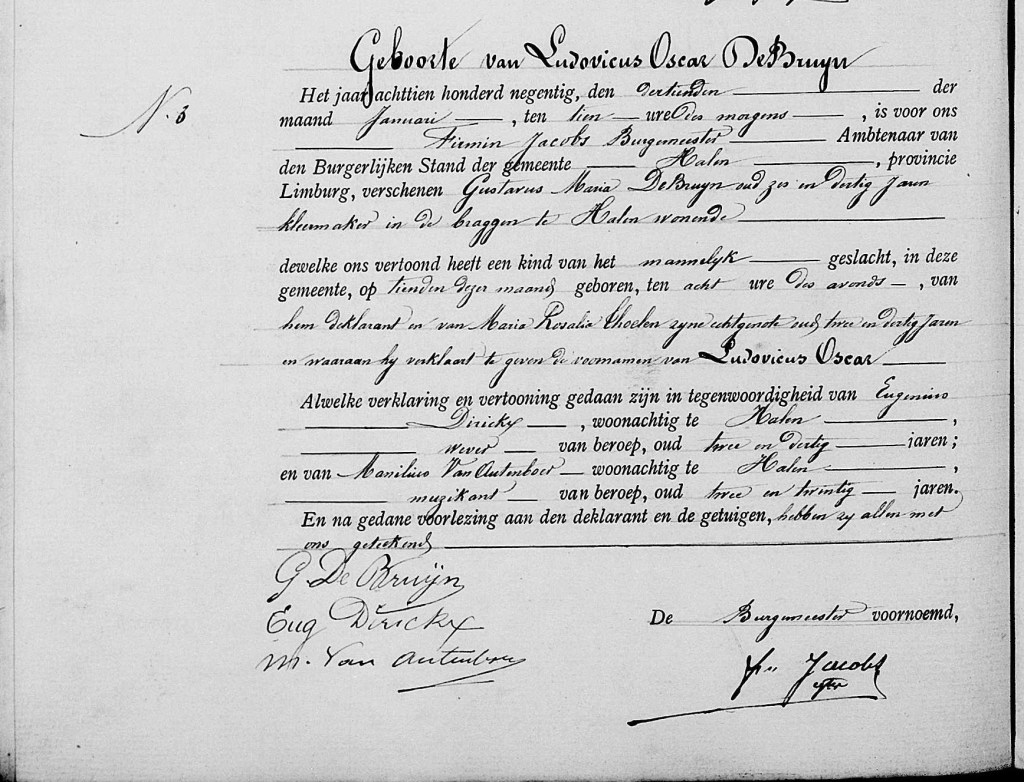 Geboorte van Ludovicus Oscar DeBruyn
N. 3
Het jaar achttien honderd negentig, den dertienden der
maand Januari, ten tien ure des morgens, is voor ons
Firmin Jacobs Burgemeester Ambtenaar van
den Burgerlijken Stand der gemeente Halen, provincie
Limburg, verschenen Gustavus Maria DeBruyn oud zes en dertig Jaren
kleermaker in de braggen te Halen wonende
dewelke ons vertoond heeft een kind van het mannelyk geslacht, in deze
gemeente, op tienden dezer maand geboren, ten acht ure des avonds, van
hem deklarant en van Maria Rosalia zyne echtgenote oud twee en dertig Jaren
en waaraan hy verklaart te geven de voornamen van Ludovicus Oscar
Alwelke verklaring en vertooning gedaan zijn in tegenwoordigheid van Eugenius
Dirickx, woonachtig te Halen,
wever van beroep, oud twee en dertig jaren;
en van Manilius Van Autenboer woonachtig te Halen,
muzikant van beroep, oud twee en twintig jaren.
En na gedane voorlezing aan den deklarant en de getuigen, hebben zy allen met
ons geteekend
G. De Bruijn
Eug Dirickx
M. Van Autenboer
De Burgemeester voornoemd,
Jacobs